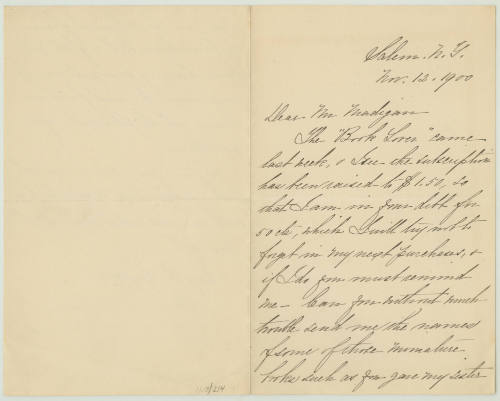 Salem. N.Y.
Nov. 12. 1900
Dear Mr Madigan
The "Book Lover" came
last week, & I see the subscription
has been raised to $1.50, so
that I am in your debt for
50 cts, which I will try not to
forget in my next purchases, &
if I do you must remind
me – Can you without much
trouble send me the names
of some of those miniature
books such as you gave my sister